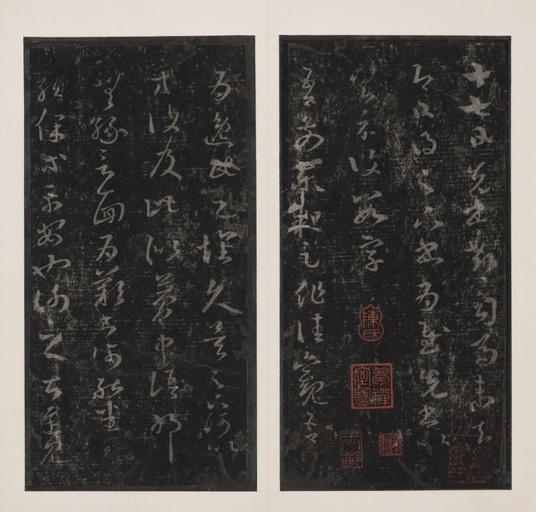 十七日先書郗司馬未去
即日得足下書為慰先書以
具示復數字
吾前東粗足作佳觀吾
為逸民之懷久矣足下何以
等復及此似夢中語耶
無緣言面為歎書何能悉
龍保等平安也謝之甚遲見